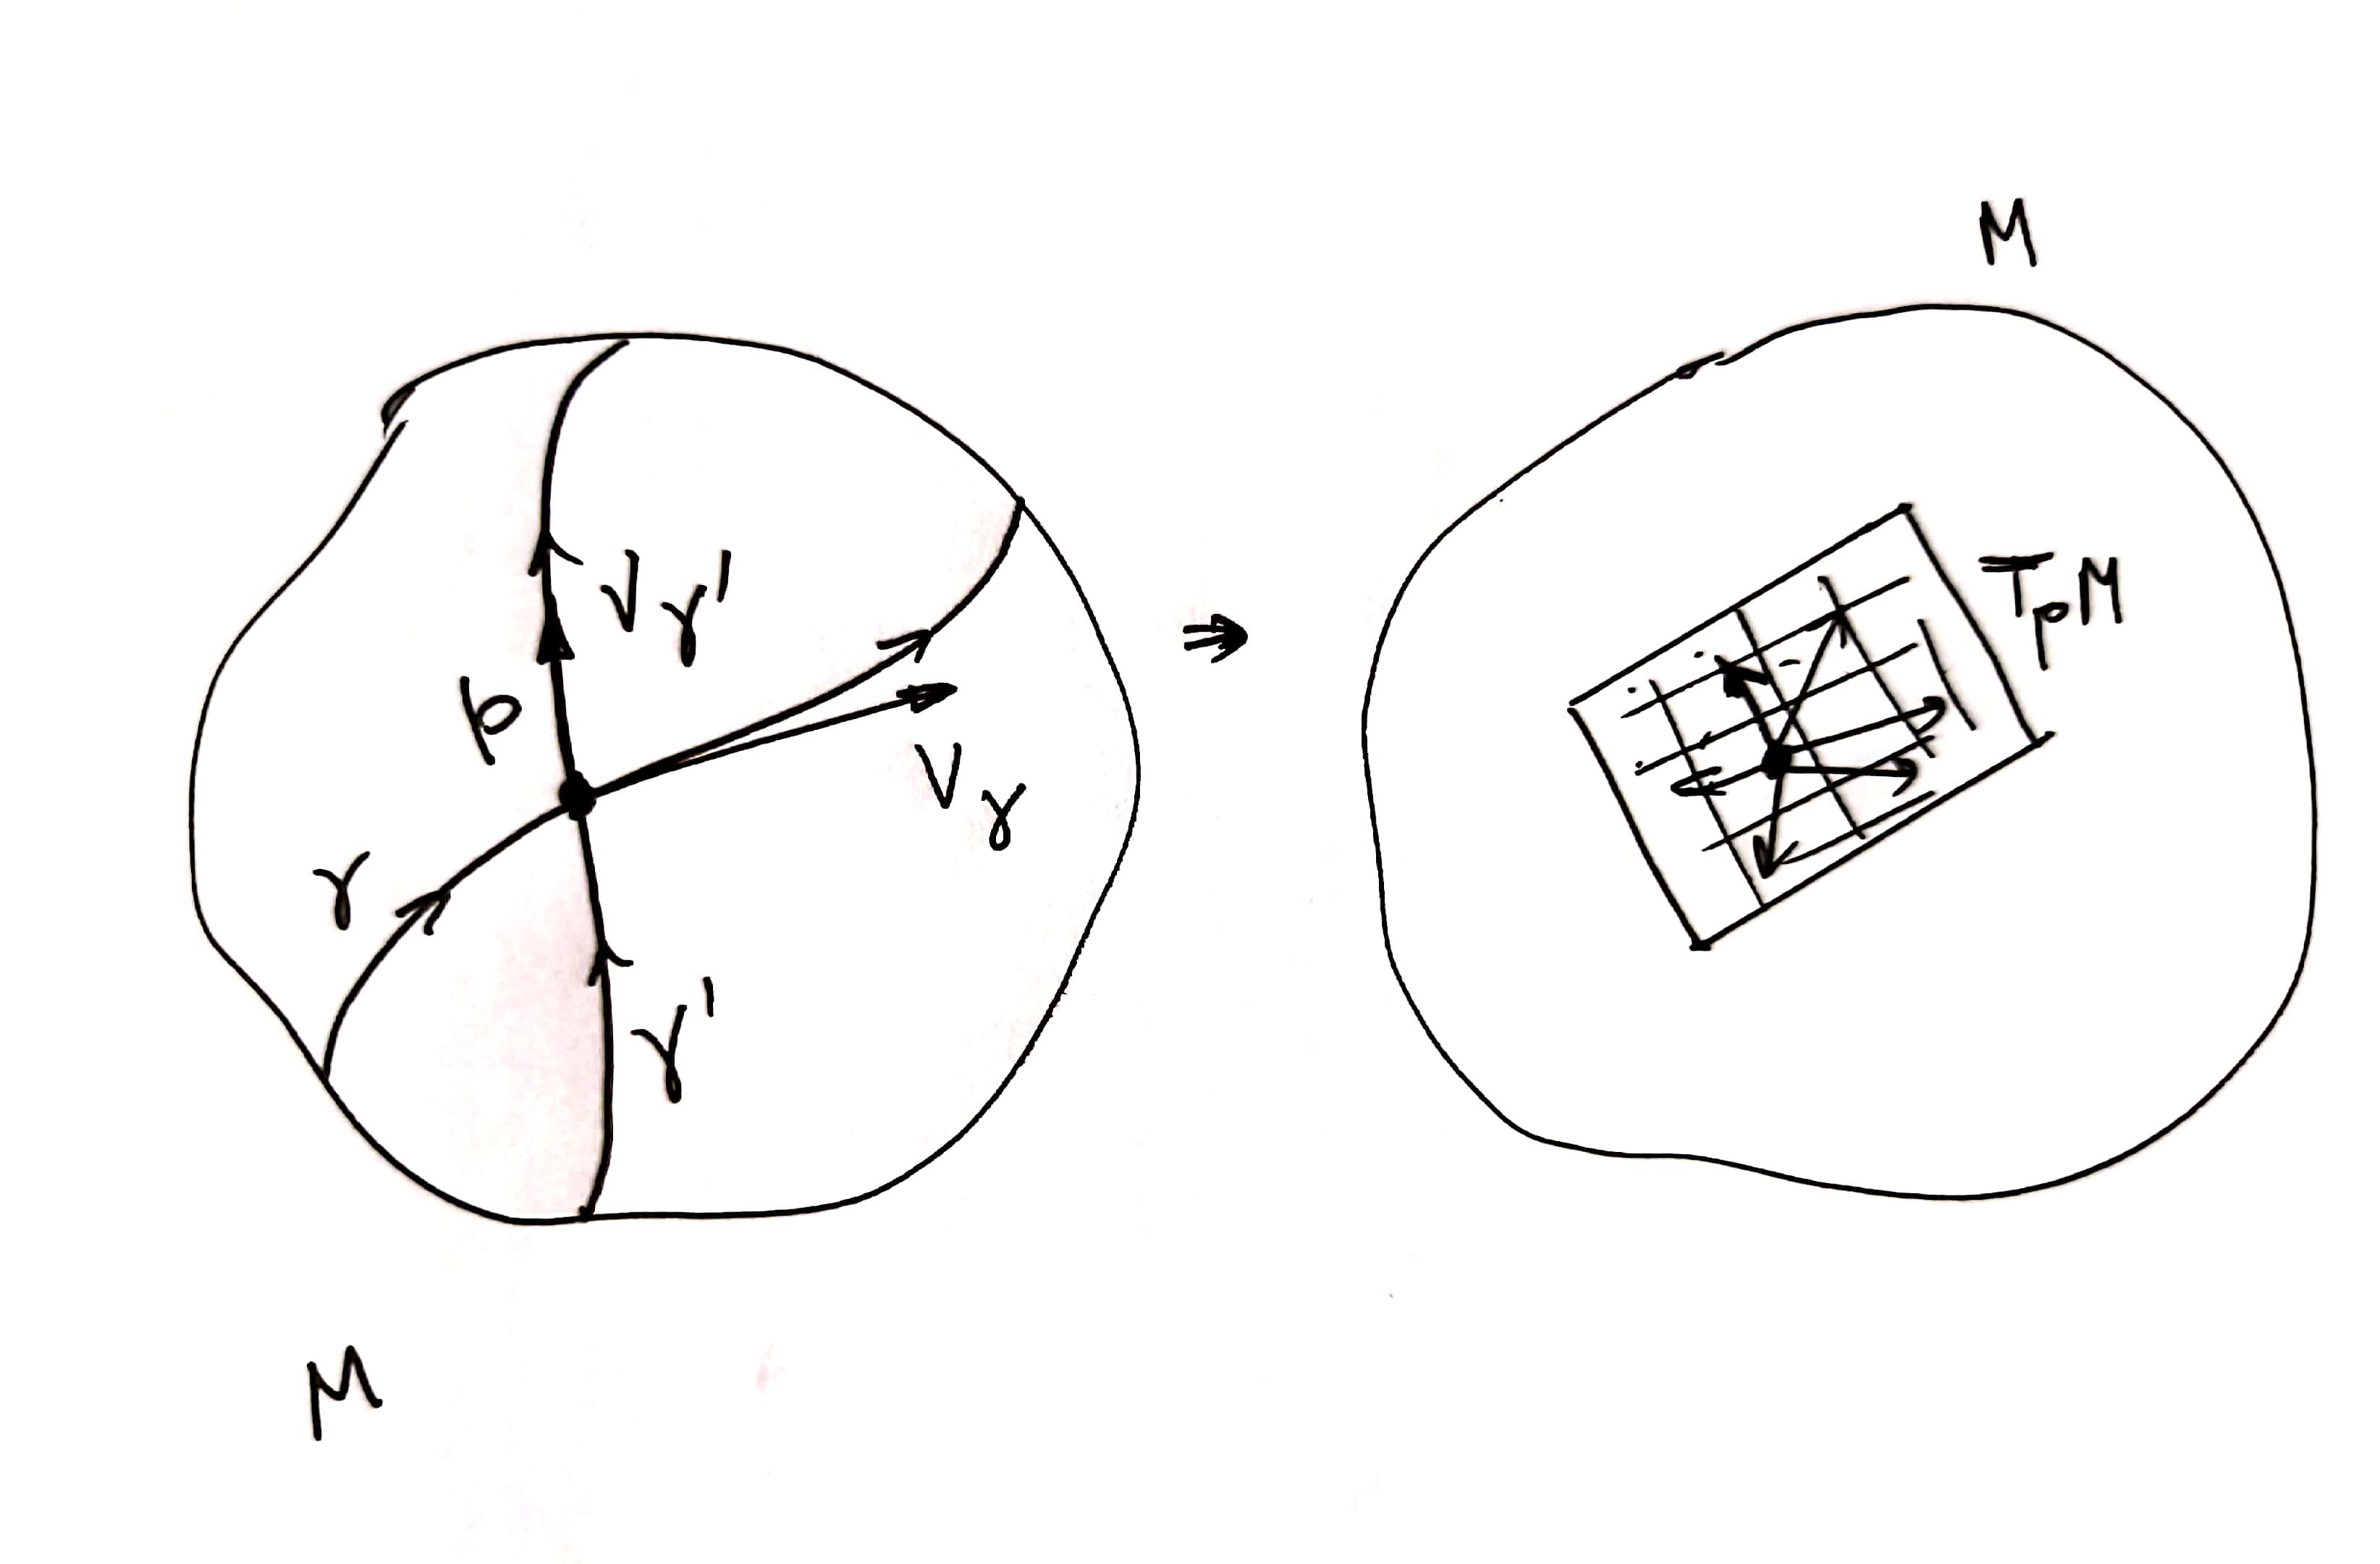 M
V_γ'
p
V_γ
γ
γ'
M
⇒
T_pM